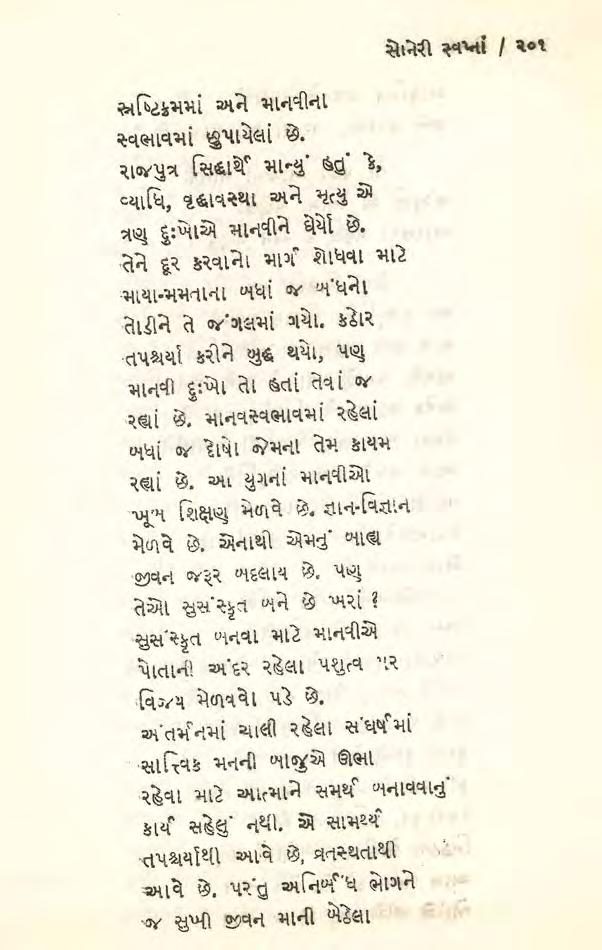 સોનેરી સ્વપ્નાં / ૨૦૧
સ્રષ્ટિક્રમમાં અને માનવીના
સ્વભાવમાં છુપાયેલાં છે.
રાજપુત્ર સિદ્ધાર્થે માન્યું હતું કે,
વ્યાધિ, વૃદ્ધાવસ્થા અને મૃત્યુ એ
ત્રણ દુઃખોએ માનવીને ઘેર્યો છે.
તેને દૂર કરવાનો માર્ગ શોધવા માટે
માયા-મમતાના બધાં જ બંધનો
તોડીને તે જંગલમાં ગયો. કઠોર
તપશ્ચર્યા કરીને બુદ્ધ થયો, પણ
માનવી દુઃખો તો હતાં તેવાં જ
રહ્યાં છે. માનવસ્વભાવમાં રહેલાં
બધાં જ દોષો જેમના તેમ કાયમ
રહ્યાં છે. આ યુગનાં માનવીઓ
ખૂબ શિક્ષણ મેળવે છે. જ્ઞાન-વિજ્ઞાન
મેળવે છે. એનાથી એમનું બાહ્ય
જીવન જરૂર બદલાય છે. પણ
તેઓ સુસંસ્કૃત બને છે ખરાં ?
સુસંસ્કૃત બનવા માટે માનવીએ
પોતાની અંદર રહેલા પશુત્વ પર
વિજય મેળવવો પડે છે.
અંતર્મનમાં ચાલી રહેલા સંઘર્ષમાં
સાત્ત્વિક મનની બાજુએ ઊભા
રહેવા માટે આત્માને સમર્થ બનાવવાનું
કાર્ય સહેલું નથી. એ સામર્થ્ય
તપશ્ચર્યાથી આવે છે, વ્રતસ્થતાથી
આવે છે. પરંતુ અનિર્બંધ ભોગને
જ સુખી જીવન માની બેઠેલા